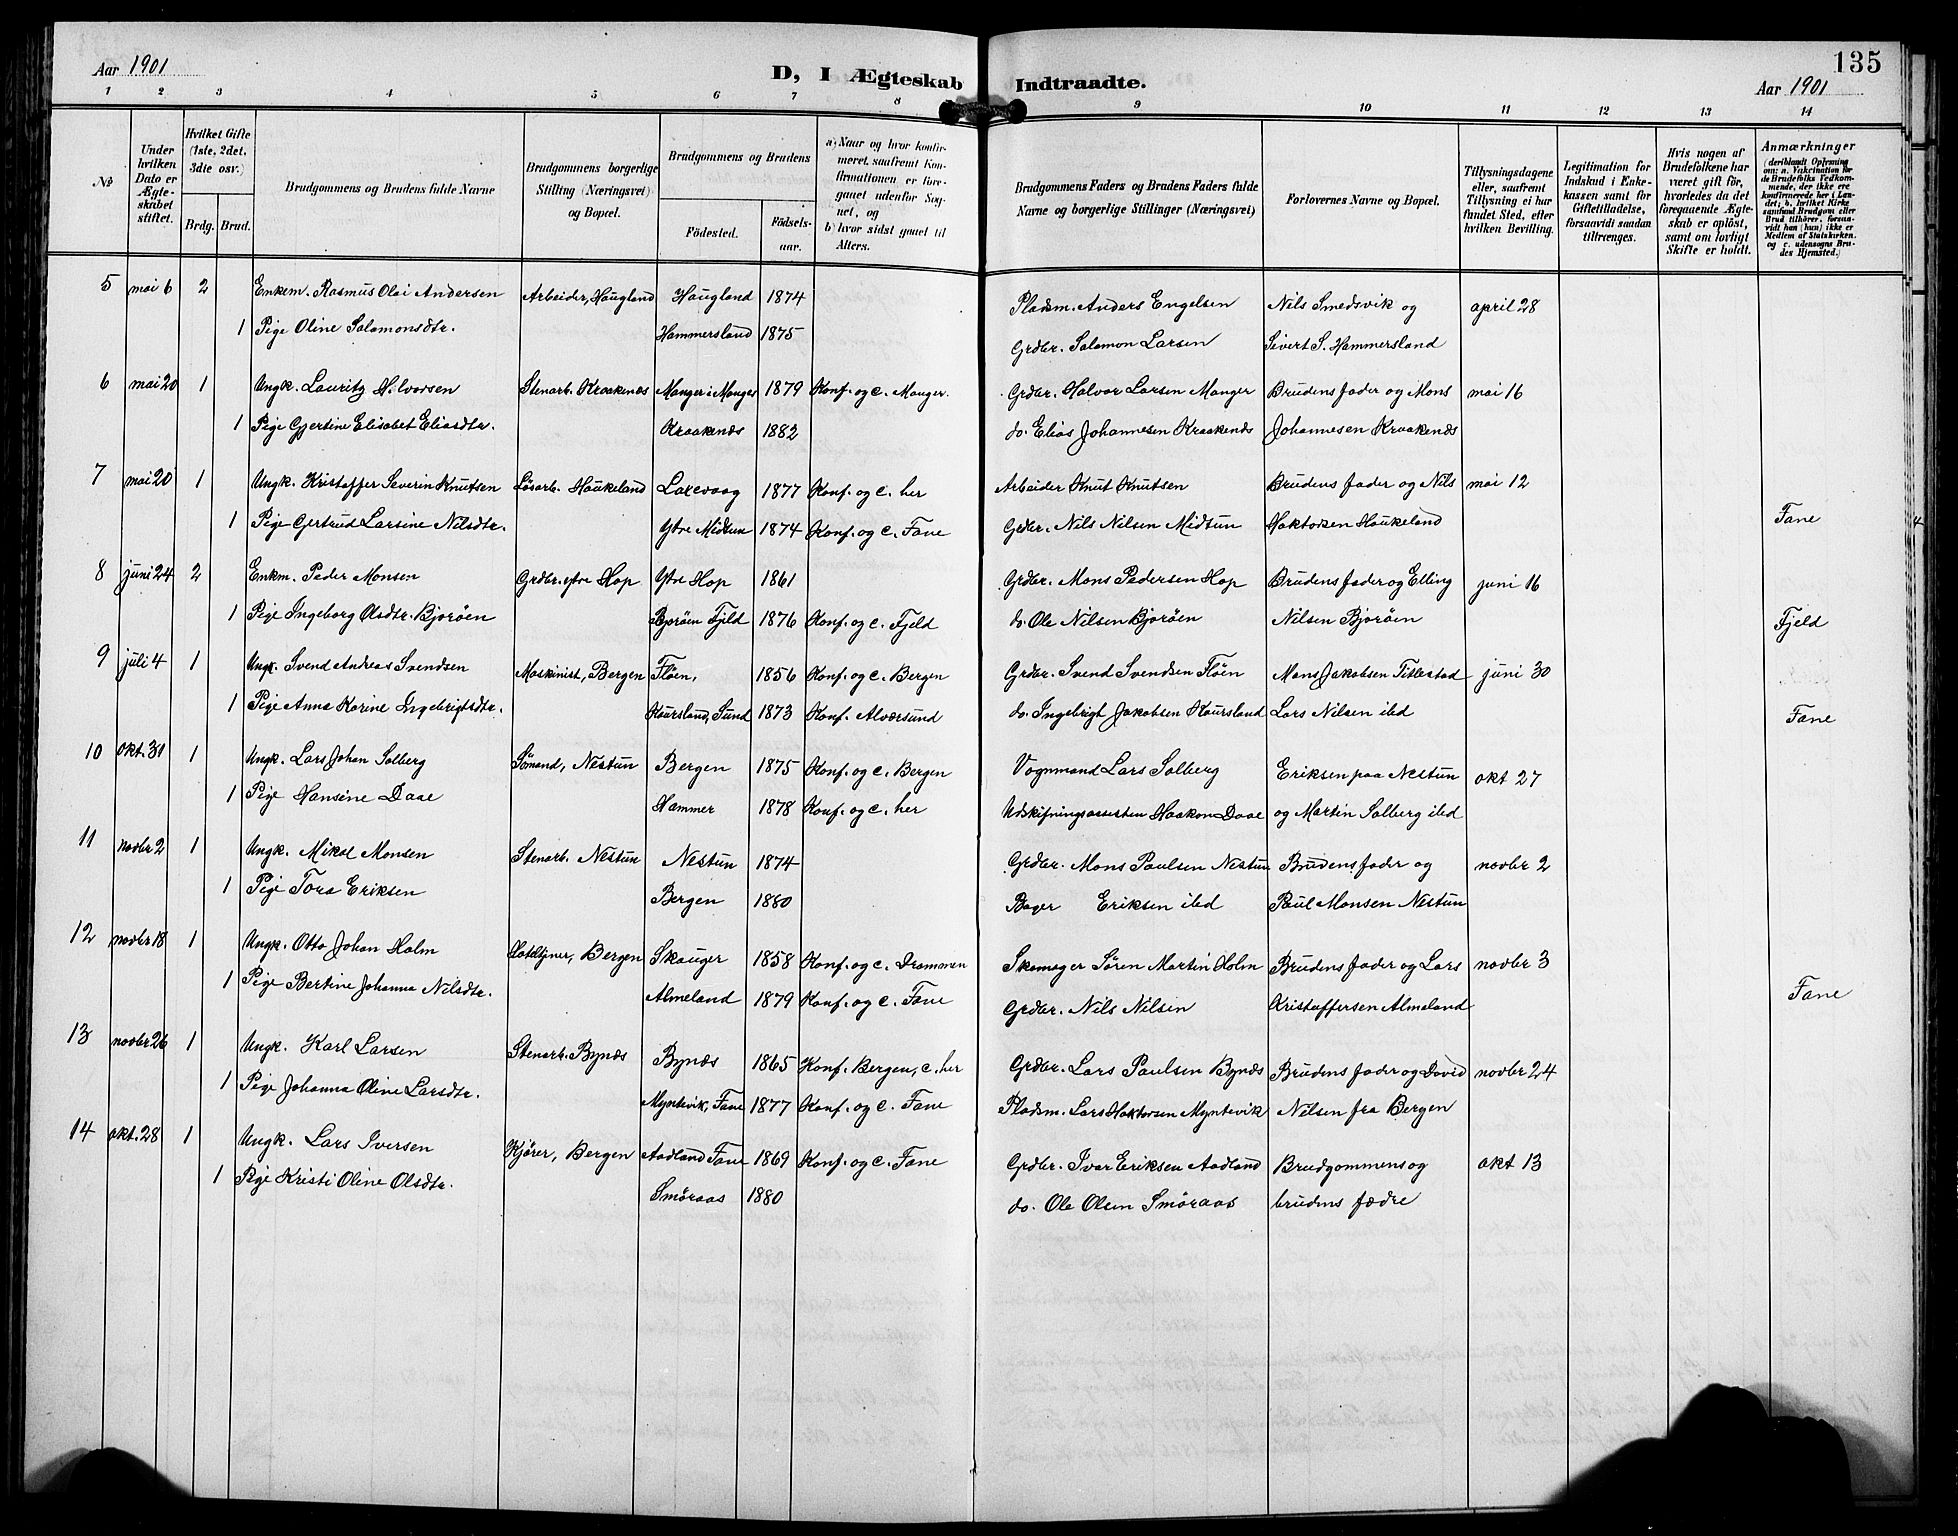 Aar 1901
D, I Ægteskab Indtraadte.
135
Aar 1901
1 2 3 4 5 6 7 8 9 10 11 12 13 14
№
Under hvilken Dato er Ægteskabet stiftet.
Hvilket Gifte (1ste, 2det, 3dte osv.)
Brdg. Brud.
Brudgommens og Brudens fulde Navne
Brudgommens borgerlige Stilling (Næringsvei) og Bopæl.
Brudgommens og Brudens
Fødested.
Fødselsaar.
a) Naar og hvor konfirmeret, saafremt Konfirmationen er foregaaet udenfor Sognet, og
b) hvor sidst gaaet til Alters.
Brudgommens Faders og Brudens Faders fulde Navne og borgerlige Stillinger (Næringsvei)
Forlovernes Navne og Bopæl.
Tillysningsdagene eller, saafremt Tillysning ei har fundet Sted, efter hvilken Bevilling.
Legitimation for Indskud i Enkekassen samt for Giftetilladelse, forsaavidt saadan tiltrænges.
Hvis nogen af Brudefolkene har været gift før, hvorledes da det foregaaende Ægteskab er opløst, samt om lovligt Skifte er holdt.
Anmærkninger
(deriblandt Oplysning om: a. Vakcination for de Brudefolks Vedkommende, der ikke ere konfirmerede her i Landet; b. hvilket Kirkesamfund Brudgom eller Brud tilhører, forsaavidt han (hun) ikke er Medlem af Statskirken, og c. udensogns Brudes Hjemsted.)
5 mai 6 2 Enkem. Rasmus Olai Andersen Arbeider, Haugland Haugland 1874 Pladsm. Anders Engelsen Nils Smedsvik og april 28
1 Pige Oline Salamonsdtr. Hammersland 1875 Grdbr. Salamon Larsen Sivert S. Hammersland
6 mai 20 1 Ungk. Lauritz Halvorsen Stenarb. Kraakenæs Manger i Manger 1879 Konf. og c. Manger. Grdbr. Halvor Larsen Manger Brudens fader og Mons mai 16
1 Pige Gjertine Elisabet Eliasdtr. Kraakenæs 1882 do. Elias Johannesen Kraakenæs Johannesen Kraakenæs
7 mai 20 1 Ungk. Kristoffer Severin Knutsen Løsarb. Haukeland Laxevaag 1877 Konf. og c. her Arbeider Knut Knutsen Brudens fader og Nils mai 12
1 Pige Gertrud Larsine Nilsdtr. Ytre Midtun 1874 Konf. og c. Fane Grdbr. Nils Nilsen Midtun Haktorsen Haukeland Fane
8 juni 24 2 Enkm. Peder Monsen Grdbr. ytre Hop Ytre Hop 1861 Grdbr. Mons Pedersen Hop Brudens fader og Elling juni 16
1 Pige Ingeborg Olsdtr. Bjorøen Bjorøen Fjeld 1876 Konf. og c. Fjeld do. Ole Nilsen Bjorøen Nilsen Bjorøen Fjeld
9 juli 4 1 Ungk. Svend Andreas Svendsen Maskinist, Bergen Fløen, 1856 Konf. og c. Bergen Grdbr. Svend Svendsen Fløen Mons Jakobsen Titlestad juni 30
1 Pige Anna Karine Ingebrigtsdtr. Kaursland, Sund 1873 Konf. Alværsund do. Ingebrigt Jakobsen Kaursland Lars Nilsen ibd Fane
10 okt. 31 1 Ungk. Lars Johan Solberg Sømand, Nestun Bergen 1875 Konf. og c. Bergen Vognmand Lars Solberg Eriksen paa Nestun okt 27
1 Pige Hansine Daae Hammer 1878 Konf. og c. her Udskifningsassesten Haakon Daae og Martin Solberg ibd
11 novbr 2 1 Ungk. Mikal Monsen Stenarb. Nestun Nestun 1874 Grdbr. Mons Paulsen Nestun Brudens fader og novbr 2
1 Pige Tora Eriksen Bergen 1880 Bager Eriksen ibd Paul Monsen Nestun
12 novbr 18 1 Ungk. Otto Johan Holm Hoteltjner, Bergen Skauger 1858 Konf. og c. Drammen Skomager Søren Martin Holm Brudens fader og Lars novbr 3
1 Pige Bertine Johanna Nilsdtr. Almeland 1879 Konf. og c. Fane Grdbr. Nils Nilsen Kristoffersen Almeland Fane
13 novbr 26 1 Ungk. Karl Larsen Stenarb. Bynæs Bynæs 1865 Konf. Bergen, c. her Grdbr. Lars Paulsen Bynæs Brudens fader og David novbr 24
1 Pige Johanna Oline Larsdtr. Myntevik, Fane 1877 Konf. og c. Fane Pladsm. Lars Haktorsen Myntevik Nilsen fra Bergen
14 okt. 28 1 Ungk. Lars Iversen Kjører, Bergen Aadland Fane 1869 Konf. og c. Fane Grdbr. Ivar Eriksen Aadland Brudgommens og okt 13
1 Pige Kristi Oline Olsdtr. Smøraas 1880 do. Ole Olsen Smøraas brudens fædre